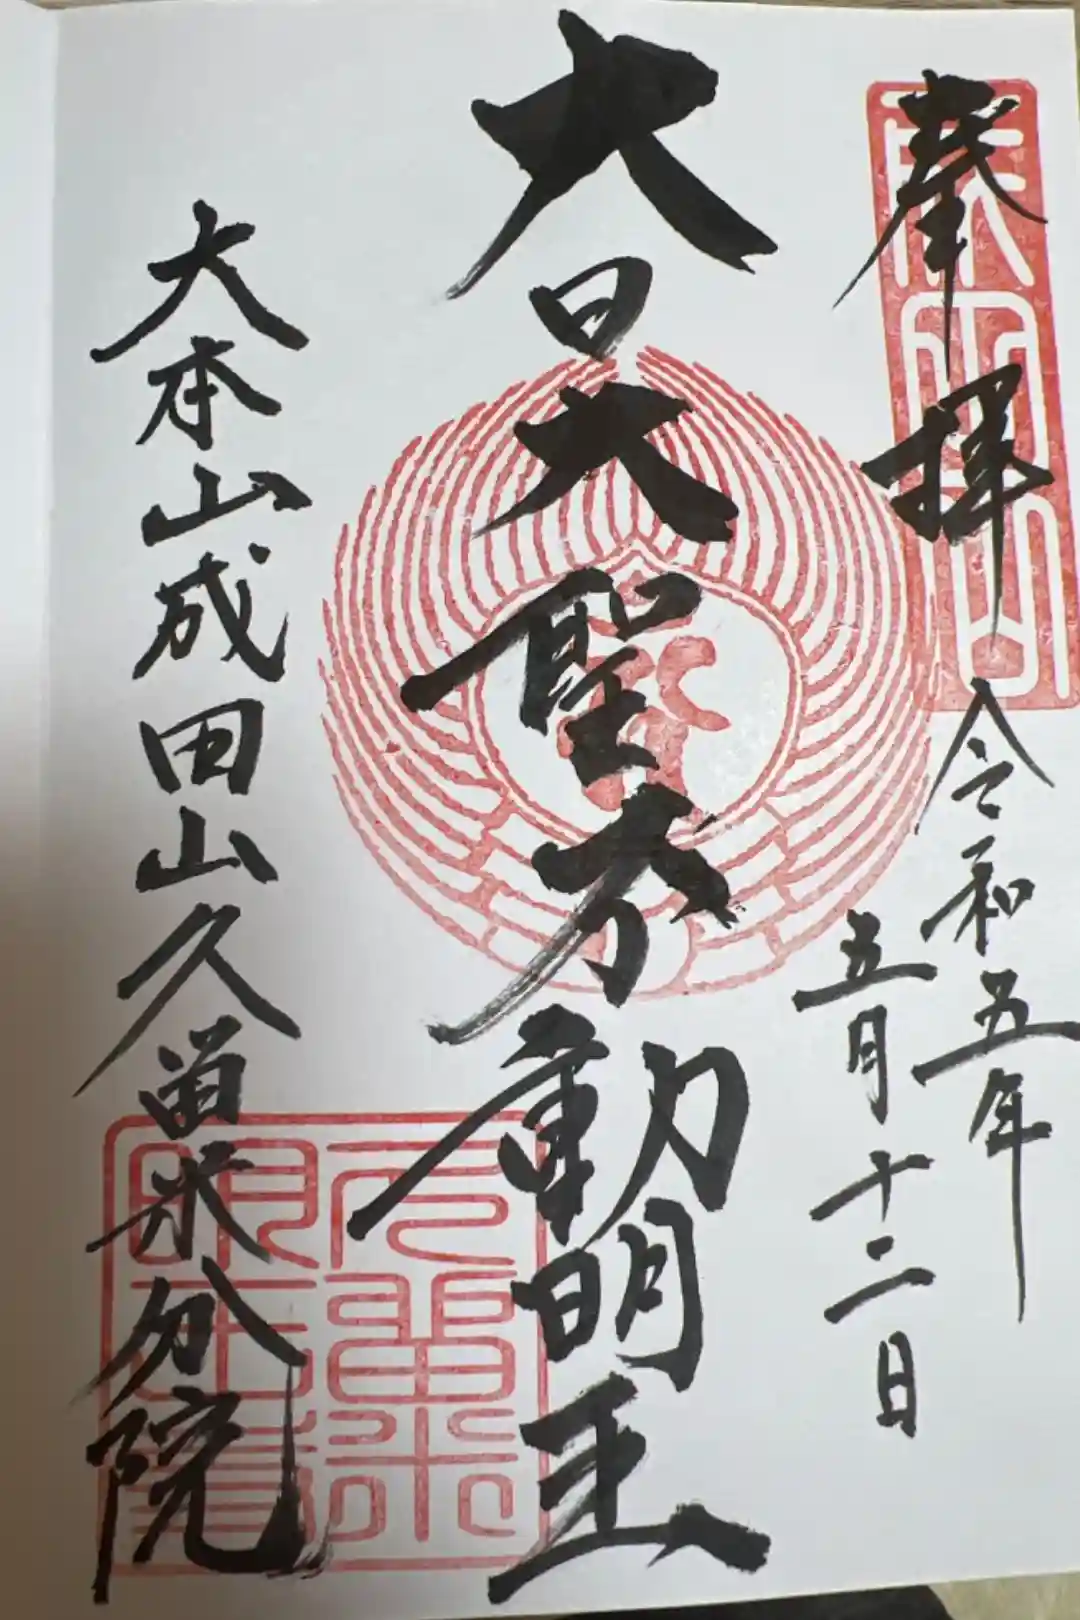 奉拝
令和五年
五月十二日
大日大聖不動明王
大本山成田山久留米分院